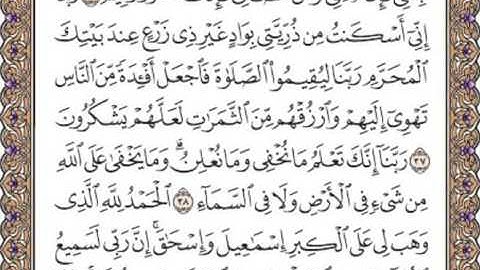 إِنِّيٓ أَسۡكَنتُ مِن ذُرِّيَّتِي بِوَادٍ غَيۡرِ ذِي زَرۡعٍ عِندَ بَيۡتِكَ
ٱلۡمُحَرَّمِ رَبَّنَا لِيُقِيمُواْ ٱلصَّلَوٰةَ فَٱجۡعَلۡ أَفۡـِٔدَةٗ مِّنَ ٱلنَّاسِ
تَهۡوِيٓ إِلَيۡهِمۡ وَٱرۡزُقۡهُم مِّنَ ٱلثَّمَرَٰتِ لَعَلَّهُمۡ يَشۡكُرُونَ
٣٧ رَبَّنَآ إِنَّكَ تَعۡلَمُ مَا نُخۡفِي وَمَا نُعۡلِنُۗ وَمَا يَخۡفَىٰ عَلَى ٱللَّهِ
مِن شَيۡءٖ فِي ٱلۡأَرۡضِ وَلَا فِي ٱلسَّمَآءِ ٣٨ ٱلۡحَمۡدُ لِلَّهِ ٱلَّذِي
وَهَبَ لِي عَلَى ٱلۡكِبَرِ إِسۡمَٰعِيلَ وَإِسۡحَٰقَۚ إِنَّ رَبِّي لَسَمِيعُ